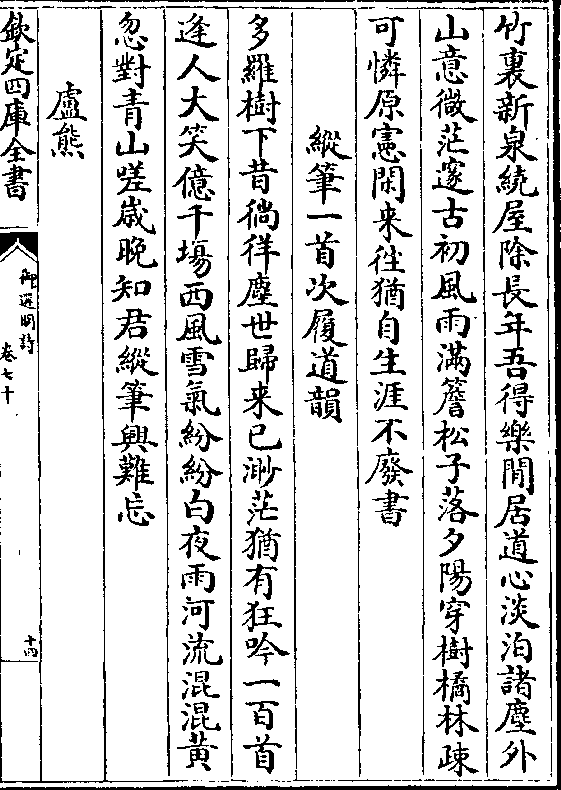 竹裏新泉繞屋除長年吾得樂閒居道心淡泊諸塵外
山意微茫邃古初風雨滿簷松子落夕陽穿樹橘林疎
可憐原憲閑来往猶自生涯不廢書
縱筆一首次履道韻
多羅樹下昔徜徉塵世歸来已渺茫猶有狂吟一百首
逢人大笑億千場西風雪氣紛紛白夜雨河流混混黄
忽對青山嗟歳晚知君縱筆興難忘
盧熊
欽定四庫全書
御選明詩
卷七十
十四